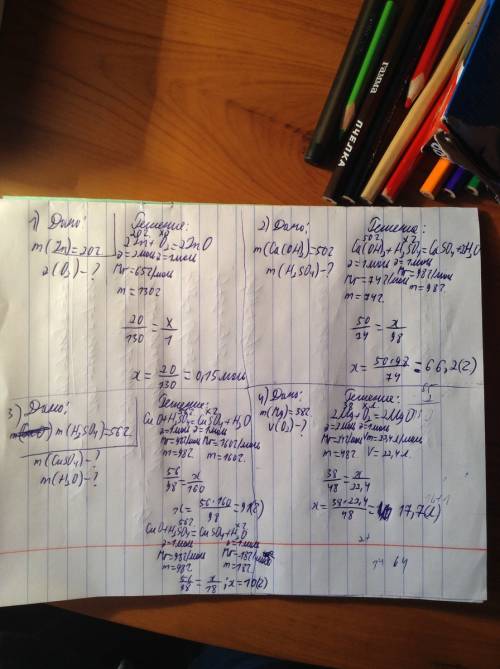 гамма
ПЧЕЛКА
1) Дано:
m(Zn)=20г
ν(O₂)-?
Решение:
20г x
2Zn+O₂=2ZnO
ν=2моль ν=1моль
Mr=65г/моль
m=130г
20/130=x/1
x=20/130=0,15моль
2) Дано:
m(Ca(OH)₂)=50г
m(H₂SO₄)-?
Решение:
50г
Ca(OH)₂+H₂SO₄=CaSO₄+2H₂O
ν=1моль ν=1моль
Mr=74г/моль Mr=98г/моль
m=74г m=98г
50/74=x/98
x=50·98/74=66,2(г)
3) Дано:
m(H₂SO₄)=56г
m(CuSO₄)-?
m(H₂O)-?
Решение:
56г xг
CuO+H₂SO₄=CuSO₄+H₂O
ν=1моль ν=1моль
Mr=98г/моль Mr=160г/моль
m=98г m=160г
56/98=x/160
x=56·160/98=91(г)
56г xг
CuO+H₂SO₄=CuSO₄+H₂O
ν=1моль ν=1моль
Mr=98г/моль Mr=18г/моль
m=98г m=18г
56/98=x/18; x=10(г)
4) Дано:
m(Mg)=38г
V(O₂)-?
Решение:
38 x
2Mg+O₂=2MgO
ν=2моль ν=1моль
Mr=24г/моль Vm=22,4л/моль
m=48г V=22,4л
38/48=x/22,4
x=38·22,4/48=17,7(л)
64